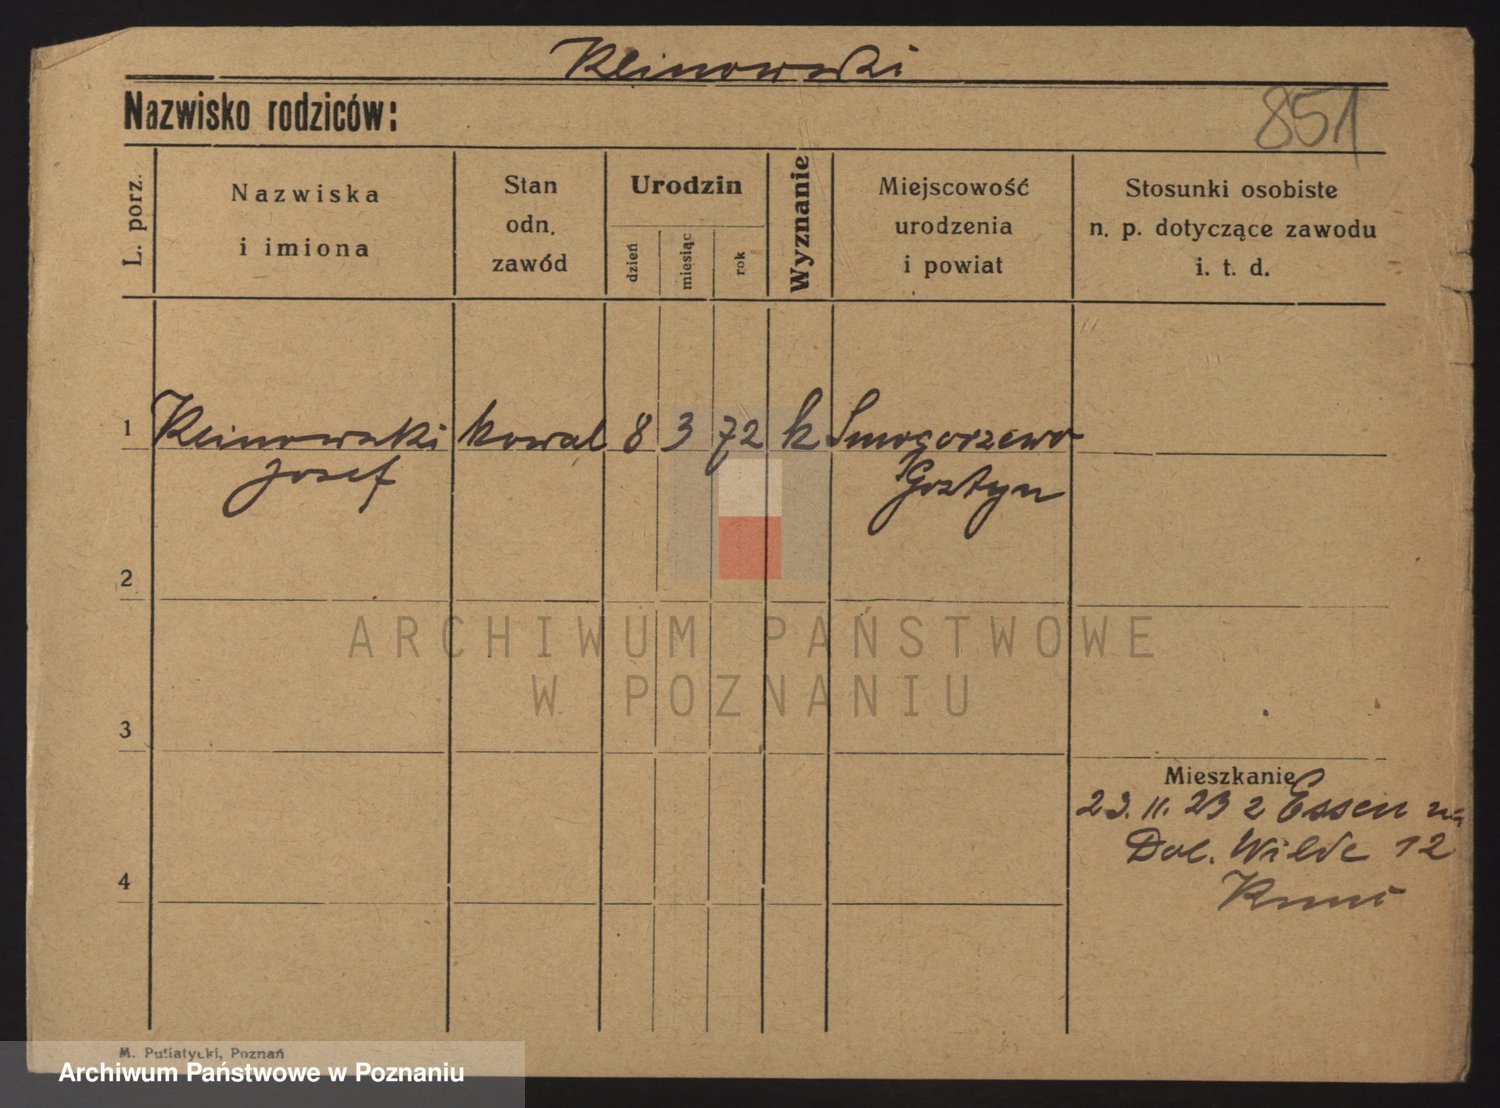 Klinowski
Nazwisko rodziców:
851
L. porz.
Nazwiska
i imiona
Stan
odn.
zawód
Urodzin
dzień
miesiąc
rok
Wyznanie
Miejscowość
urodzenia
i powiat
Stosunki osobiste
n. p. dotyczące zawodu
i. t. d.
1 Klinowski kowal 8 3 72 k Smogorzewo
Josef Gostyn
2
ARCHIWUM PAŃSTWOWE
W POZNANIU
3
Mieszkanie
23. 11. 23 z Essen na
Dol. Wilde 12
4
M. Putiatycki, Poznań
Archiwum Państwowe w Poznaniu